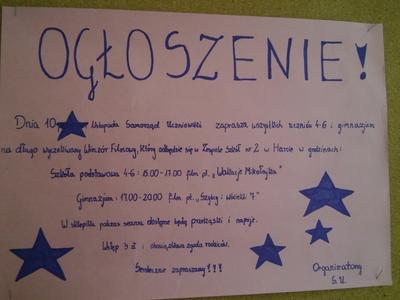 OGŁOSZENIE!
Dnia 10 listopada Samorząd Uczniowski zaprasza wszystkich uczniów 4-6 i gimnazjum
na długo wyczekiwany Wieczór Filmowy, który odbędzie się w Zespole Szkół nr 2 w Harcie w godzinach:
Szkoła podstawowa 4-6: 15.00-17.00 film pt. „Wakacje Mikołajka"
Gimnazjum: 17.00-20.00 film pt. „Szybcy i wściekli 7"
W sklepiku podczas seansu dostępne będą przekąski i napoje.
Wstęp 3 zł i obowiązkowa zgoda rodziców.
Serdecznie zapraszamy!!!
Organizatorzy
S.U.